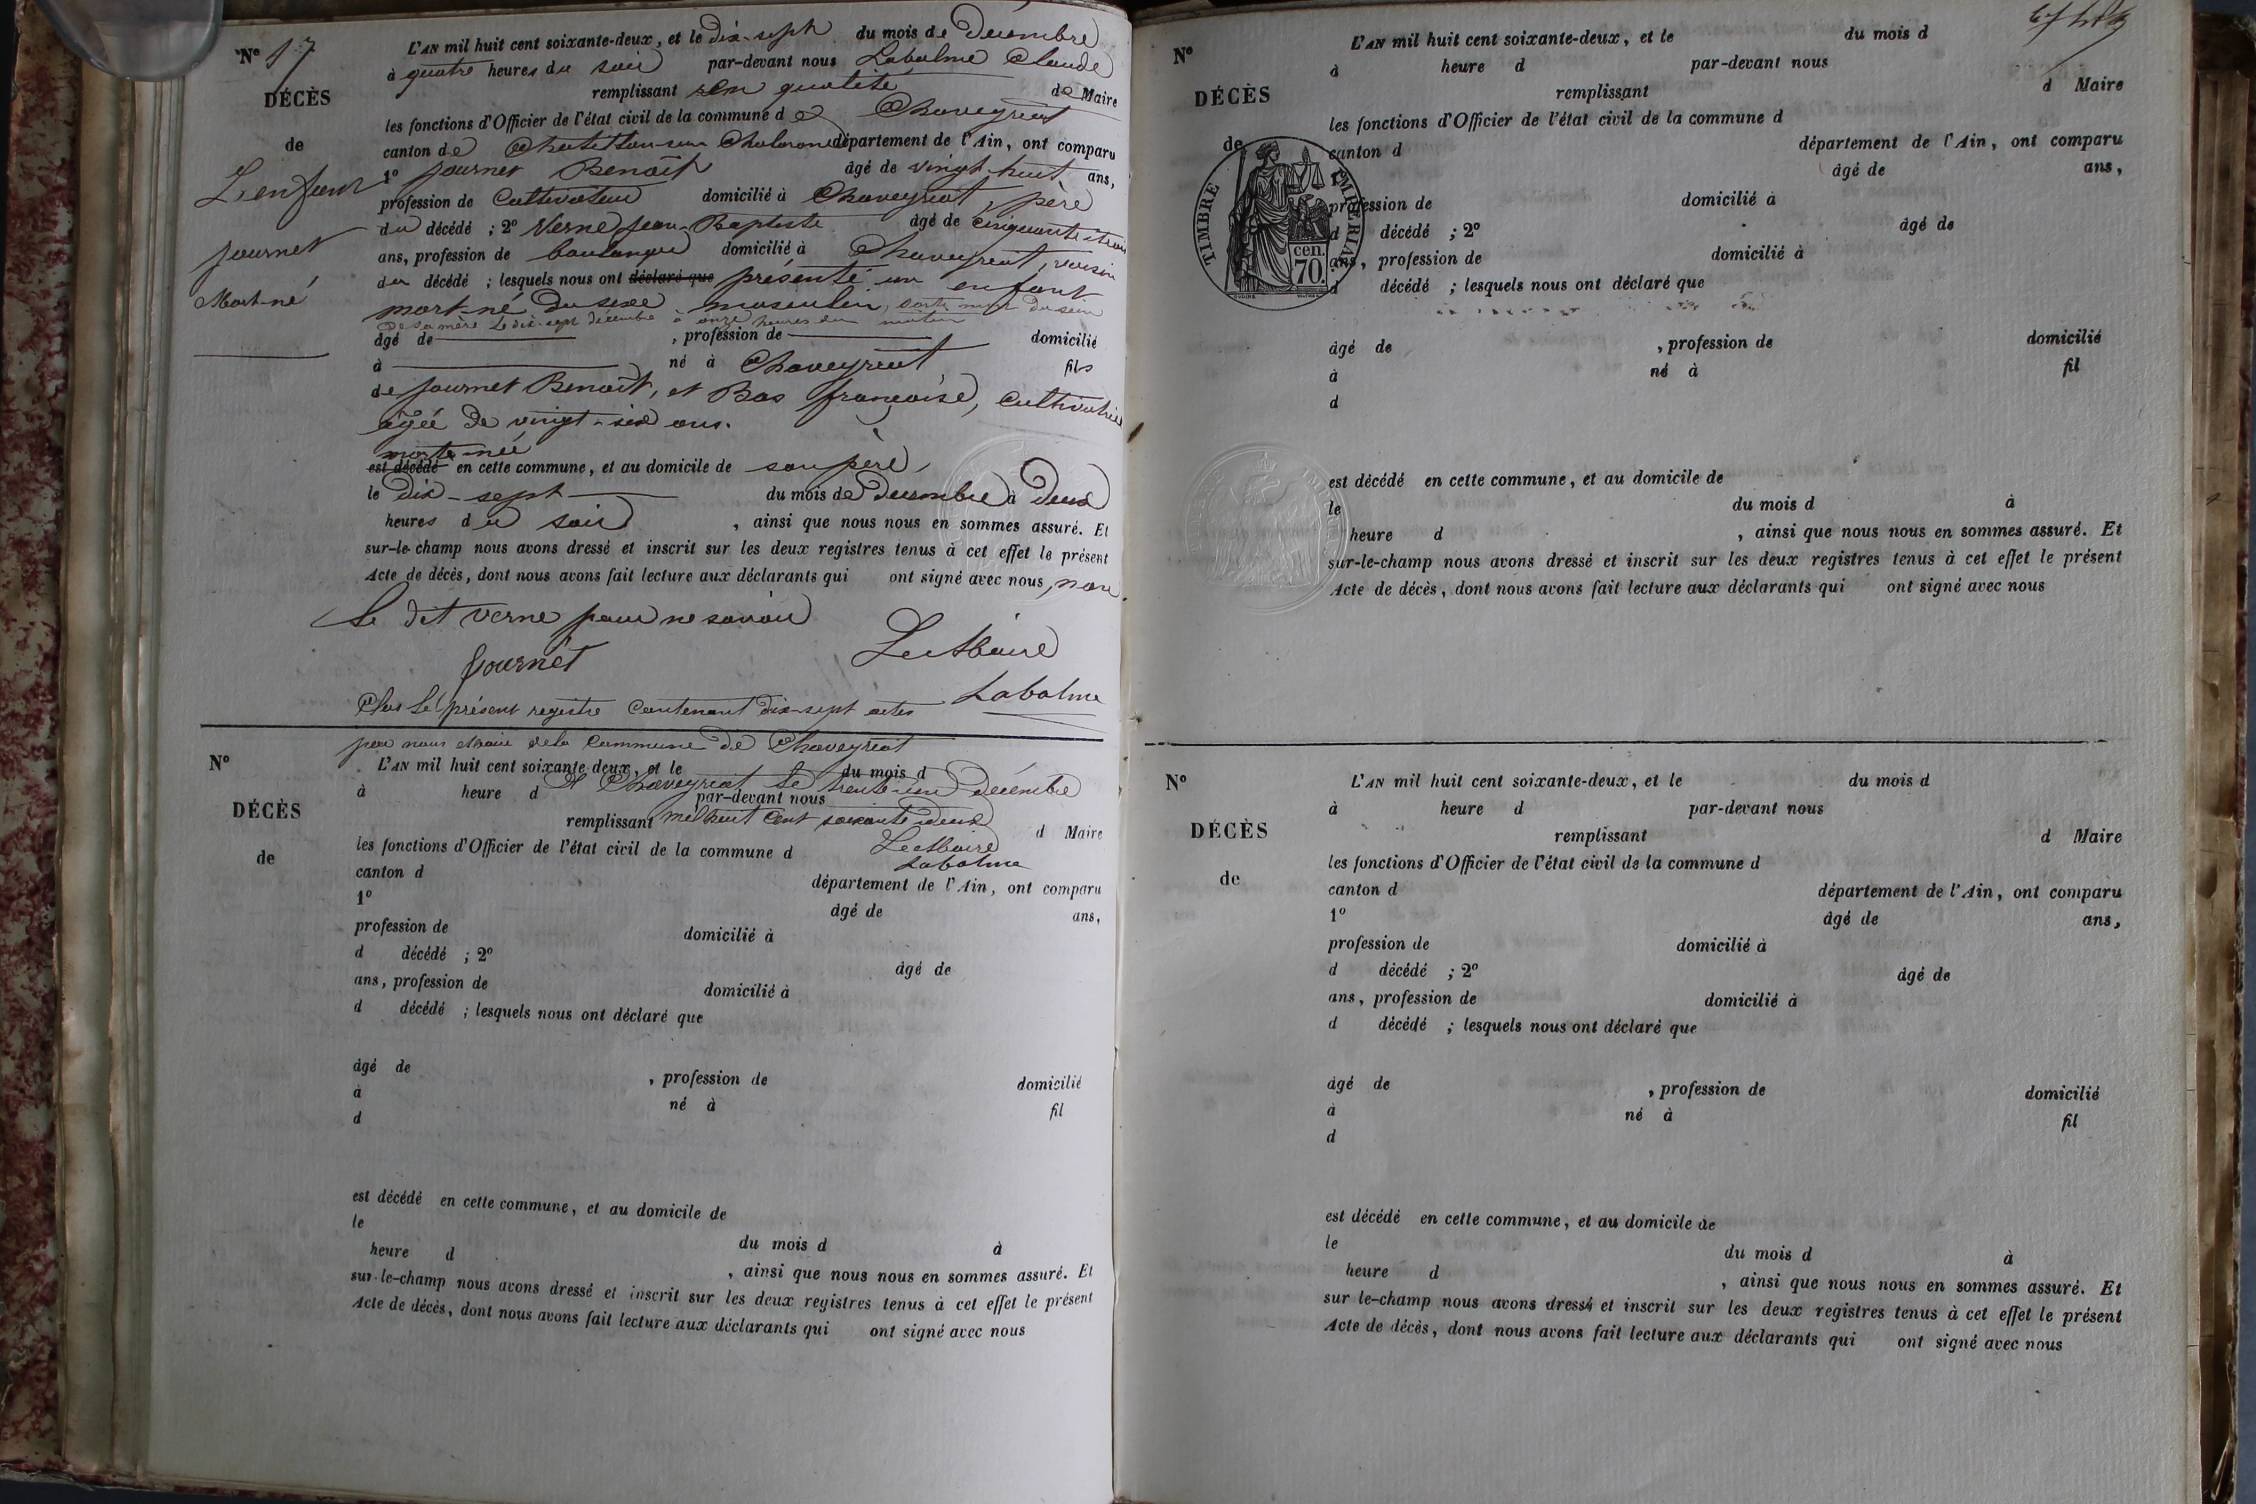 N° 17
DÉCÈS
de
L'enfant
Journet
Mort-né
L'AN mil huit cent soixante-deux, et le dix-sept du mois de Décembre
à quatre heures du soir par-devant nous Labalme Claude
remplissant en qualité de Maire
les fonctions d'Officier de l'état civil de la commune de Chaveyriat
canton de Chatillon-sur Chalaronne département de l'Ain, ont comparu
1° Journet Benoît âgé de vingt-huit ans,
profession de Cultivateur domicilié à Chaveyriat, père
du décédé ; 2° Verne Jean-Baptiste âgé de cinquante-trois
ans, profession de boulanger domicilié à Chaveyriat, voisin
du décédé ; lesquels nous ont déclaré que présenté un enfant
mort-né du sexe masculin, sorti mort du sein
de sa mère le dix-sept décembre à onze heures du matin
âgé de , profession de domicilié
à né à Chaveyriat fils
de Journet Benoît, et Bas françoise, cultivatrice
âgée de vingt-six ans.
mort-né
est décédé en cette commune, et au domicile de son père,
le dix-sept du mois de décembre à deux
heures du soir , ainsi que nous nous en sommes assuré. Et
sur-le-champ nous avons dressé et inscrit sur les deux registres tenus à cet effet le présent
Acte de décès, dont nous avons fait lecture aux déclarants qui ont signé avec nous, non
le dit Verne pour ne savoir
Journet Le Maire
Labalme
Clos le présent registre contenant dix-sept actes
par nous Maire de la Commune de Chaveyriat
N°
DÉCÈS
de
L'AN mil huit cent soixante-deux, et le du mois d
A Chaveyriat le trente-un décembre
à heure d par-devant nous
mil huit cent soixante deux
remplissant d Maire
Le Maire
Labalme
les fonctions d'Officier de l'état civil de la commune d
canton d département de l'Ain, ont comparu
1° âgé de ans,
profession de domicilié à
d décédé ; 2° âgé de
ans, profession de domicilié à
d décédé ; lesquels nous ont déclaré que
âgé de , profession de domicilié
à né à fil
d
est décédé en cette commune, et au domicile de
le du mois d à
heure d , ainsi que nous nous en sommes assuré. Et
sur-le-champ nous avons dressé et inscrit sur les deux registres tenus à cet effet le présent
Acte de décès, dont nous avons fait lecture aux déclarants qui ont signé avec nous
N°
DÉCÈS
de
TIMBRE IMPÉRIAL
70 cen.
L'AN mil huit cent soixante-deux, et le du mois d
à heure d par-devant nous
remplissant d Maire
les fonctions d'Officier de l'état civil de la commune d
canton d département de l'Ain, ont comparu
1° âgé de ans,
profession de domicilié à
d décédé ; 2° âgé de
ans, profession de domicilié à
d décédé ; lesquels nous ont déclaré que
âgé de , profession de domicilié
à né à fil
d
est décédé en cette commune, et au domicile de
le du mois d à
heure d , ainsi que nous nous en sommes assuré. Et
sur-le-champ nous avons dressé et inscrit sur les deux registres tenus à cet effet le présent
Acte de décès, dont nous avons fait lecture aux déclarants qui ont signé avec nous
N°
DÉCÈS
de
L'AN mil huit cent soixante-deux, et le du mois d
à heure d par-devant nous
remplissant d Maire
les fonctions d'Officier de l'état civil de la commune d
canton d département de l'Ain, ont comparu
1° âgé de ans,
profession de domicilié à
d décédé ; 2° âgé de
ans, profession de domicilié à
d décédé ; lesquels nous ont déclaré que
âgé de , profession de domicilié
à né à fil
d
est décédé en cette commune, et au domicile de
le du mois d à
heure d , ainsi que nous nous en sommes assuré. Et
sur le-champ nous avons dressé et inscrit sur les deux registres tenus à cet effet le présent
Acte de décès, dont nous avons fait lecture aux déclarants qui ont signé avec nous